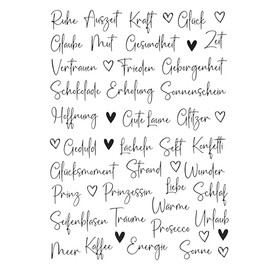 Ruhe Auszeit Kraft ♡ Glück ♡
Glaube Mut Gesundheit ♥ Zeit
Vertrauen ♡ Frieden Geborgenheit
Schokolade Erholung Sonnenschein
Hoffnung ♥ Gute Laune Glitzer ♡
♡ Geduld ♥ Lächeln Sekt Konfetti
Glücksmoment Strand ♡ Wunder
Prinz ♡ Prinzessin Liebe Schlaf
Seifenblasen Träume Wärme Prosecco Urlaub
Meer Kaffee ♥ Energie Sonne ♡